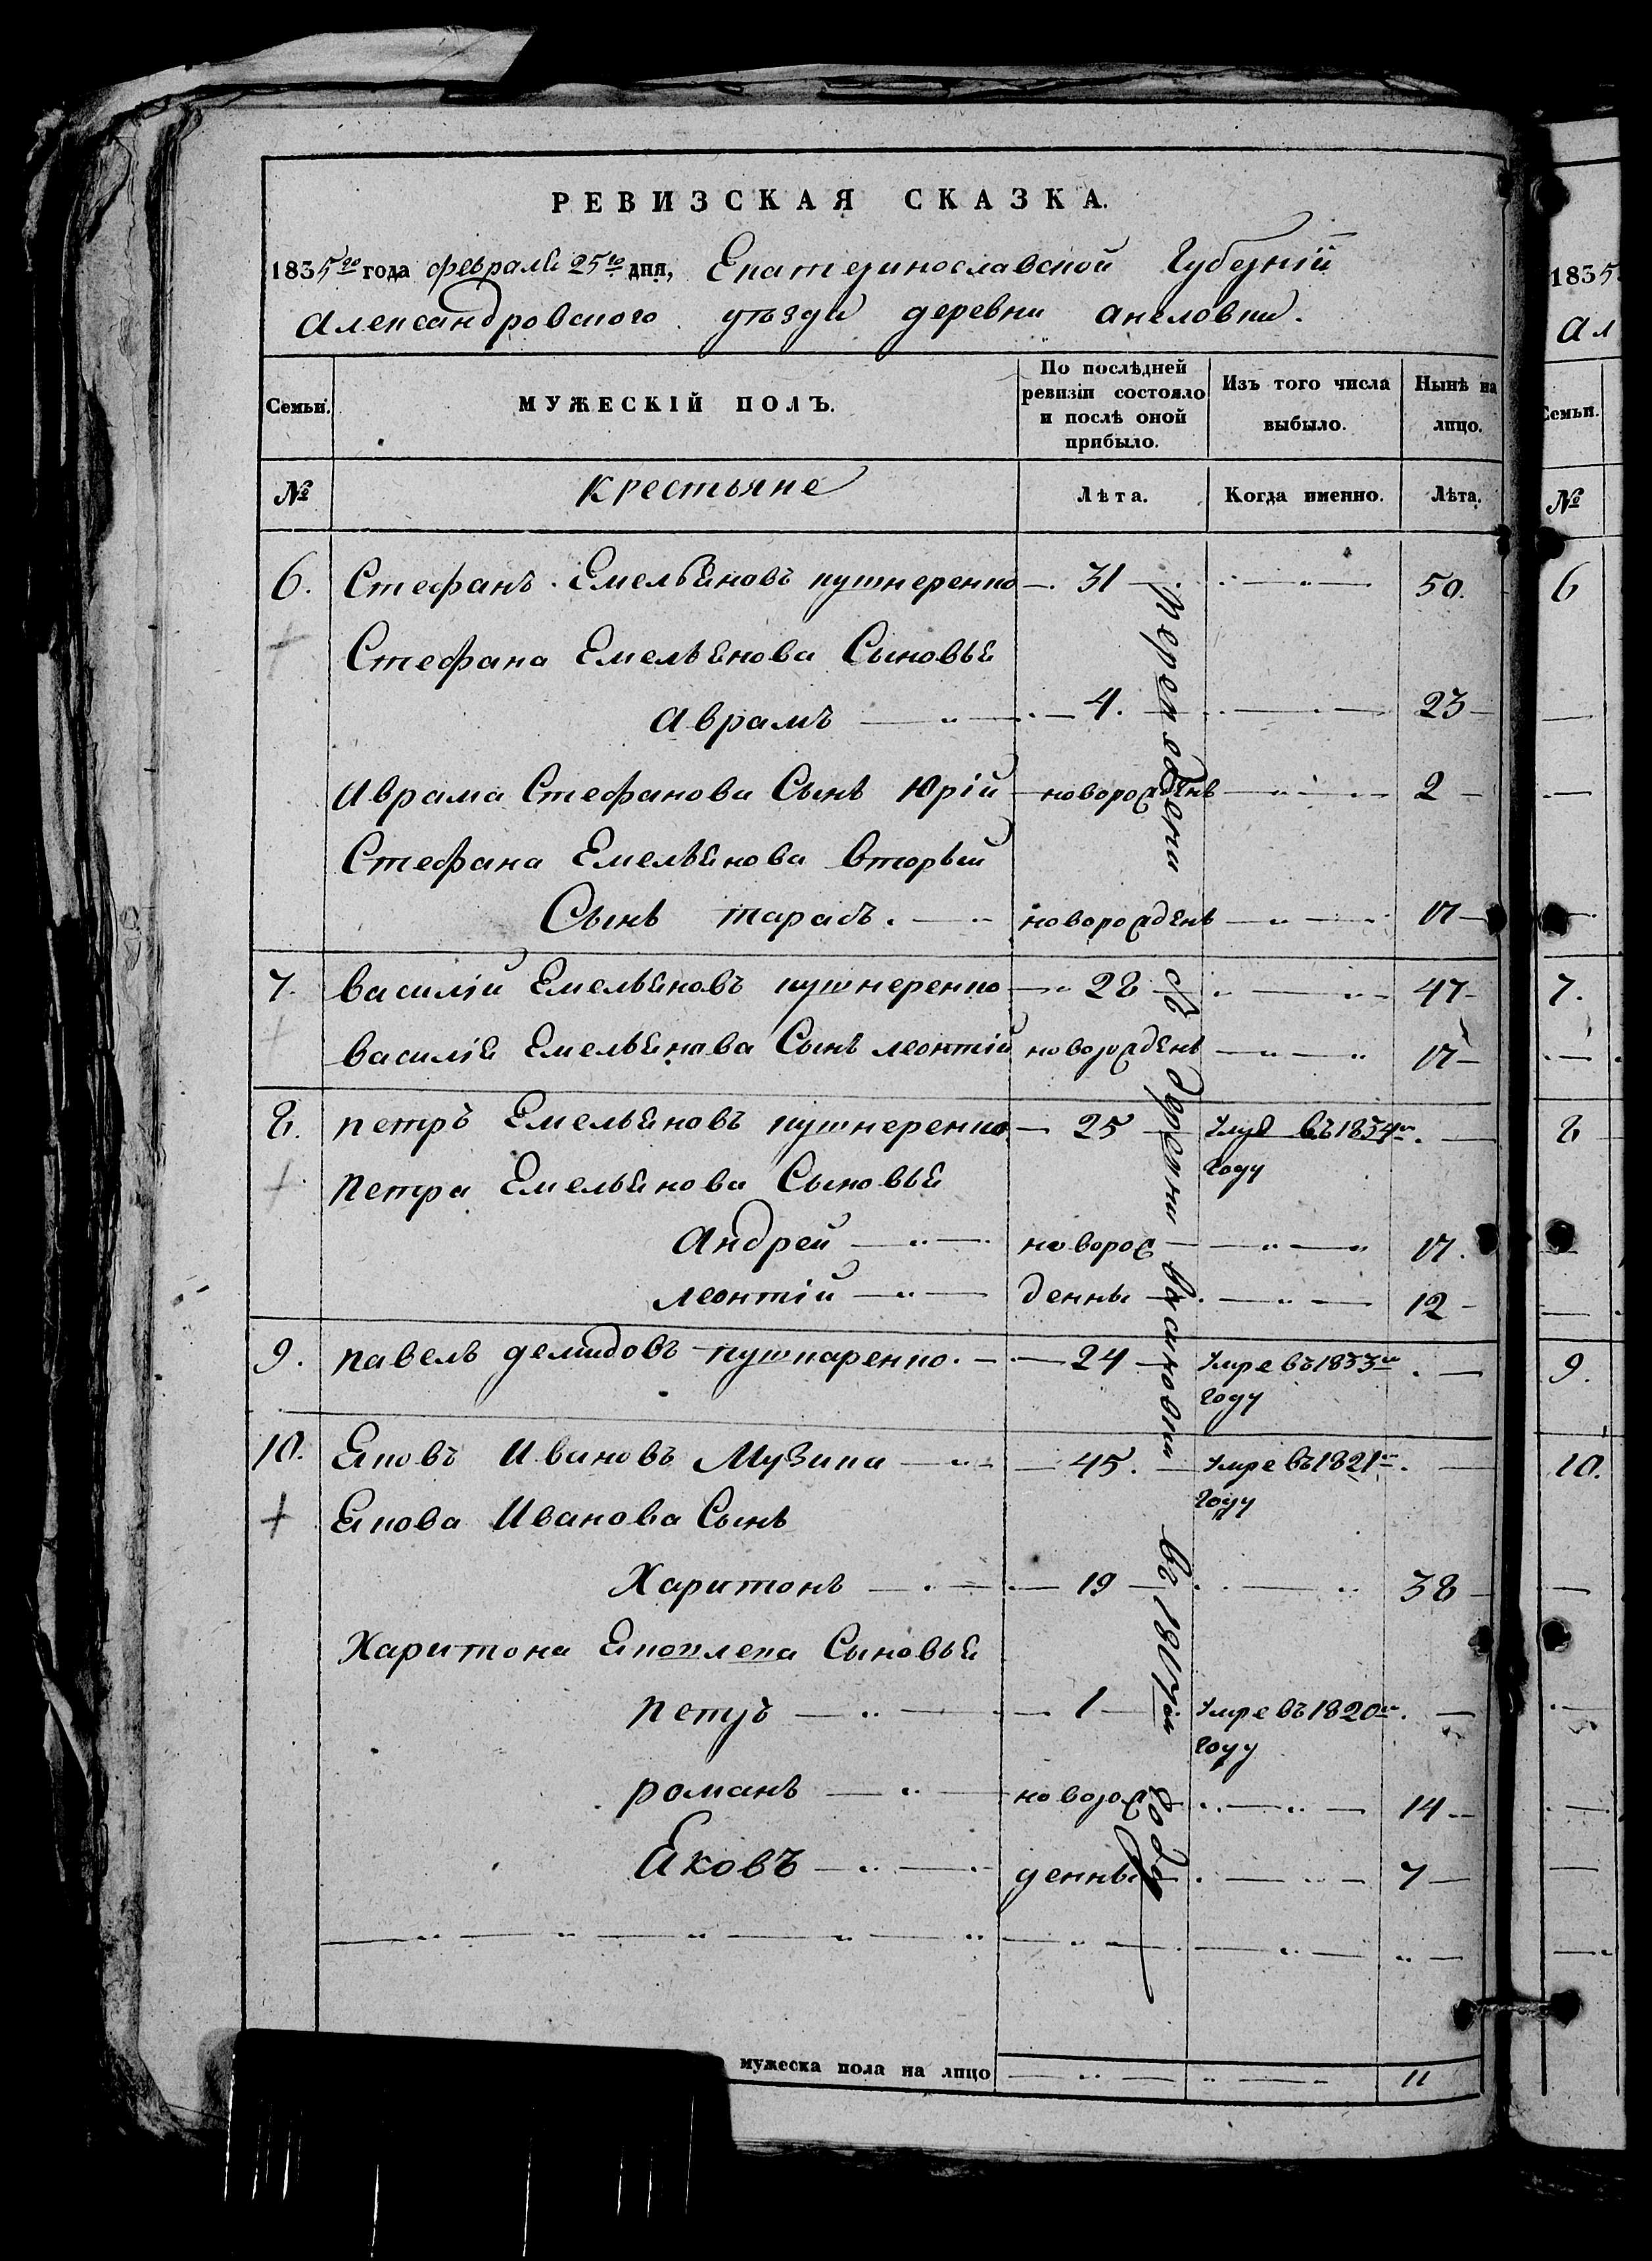 РЕВИЗСКАЯ СКАЗКА.
1835го года февраля 25го дня, Екатеринославской Губерніи
Александровского уѣзда деревни
Семьи.
МУЖЕСКІЙ ПОЛЪ.
По послѣдней ревизіи состояло и послѣ оной прибыло.
Изъ того числа выбыло.
Нынѣ на лицо.
№
Крестьяне
Лѣта.
Когда именно.
Лѣта.
6. Стефанъ Емельяновъ пушкаренко 31 50.
Стефана Емельянова Сыновья
Аврамъ 4. 23
Аврама Стефанова Сынъ Юрій новорожденъ 2
Стефана Емельянова вторый
Сынъ тарасъ. новорожденъ 17
7. василій Емельяновъ пушкаренко 28 47
василія Емельянова Сынъ леонтій новорожденъ 17
8. петръ Емельяновъ пушкаренко 25 въ 1834м
году
петра Емельянова Сыновья
Андрей новорож 17.
леонтій денны 12
9. павелъ демидовъ пушкаренко. 24 умре въ 1833м
году
10. Яковъ Ивановъ Музыка 45. умре въ 1821м
году
Якова Иванова Сынъ
Харитонъ 19 38
Харитона Сыновья
петръ 1 умре въ 1820м
году
романъ новорож 14
Яковъ денны 7
переведены изъ деревни васиковки въ 1817м году
мужеска пола на лицо 11
1835
Ал
Семьи.
№
6
7.
8
9.
10.